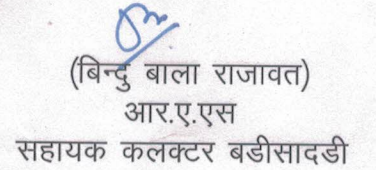 (बिन्दु बाला राजावत)
आर.ए.एस
सहायक कलक्टर बडीसादडी